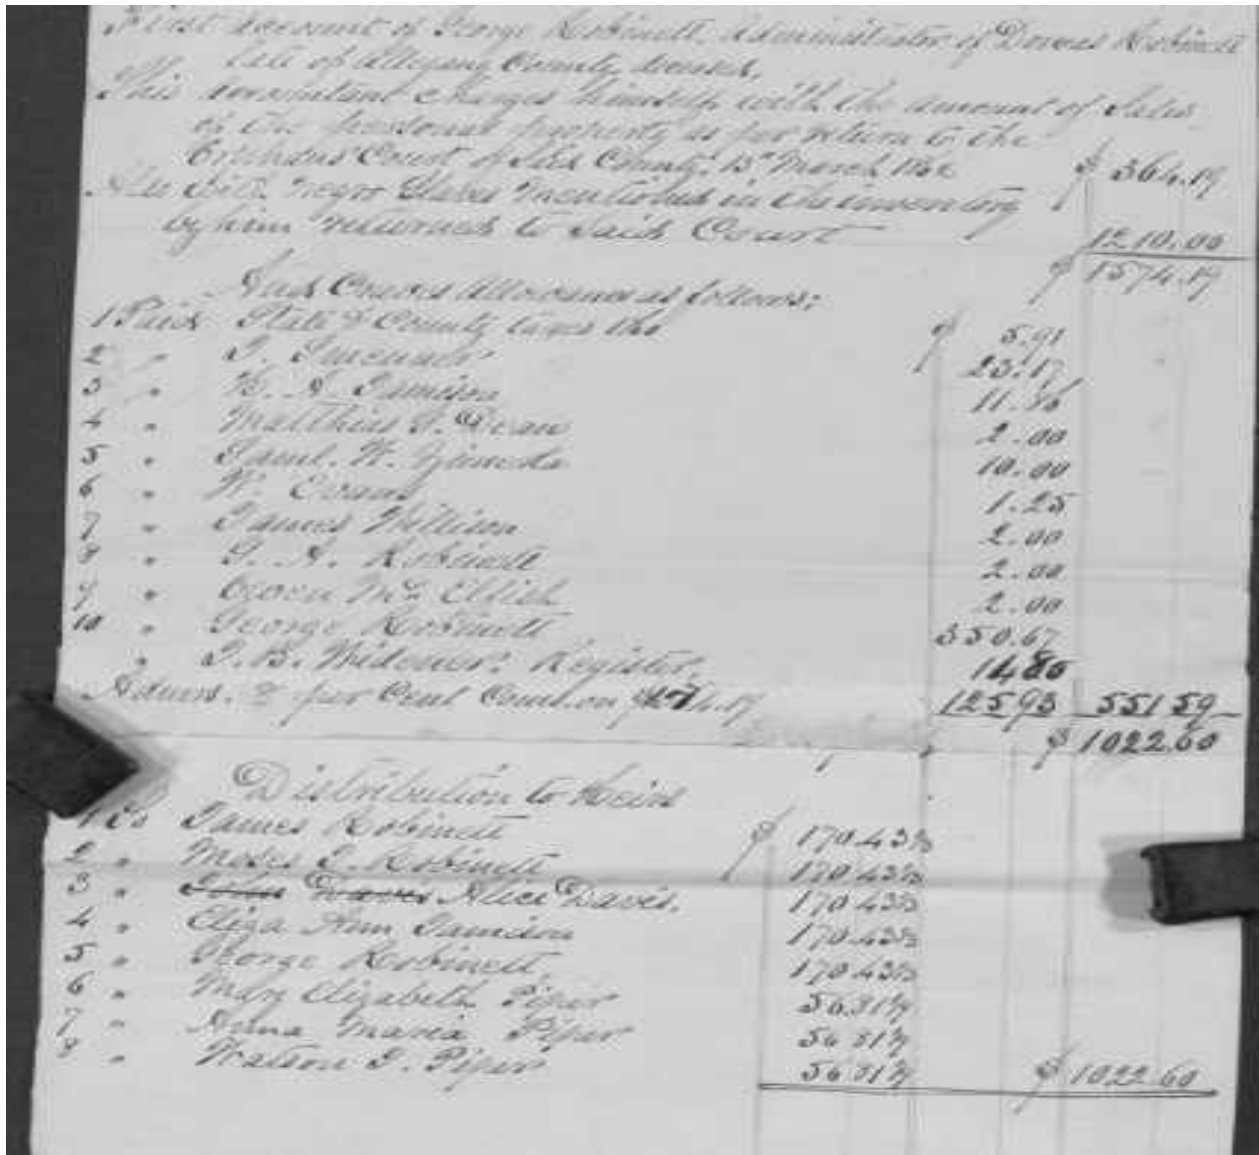 First account of George Robinett, Administrator of Dorcas Robinett
late of Allegany County, deceased,
This accountant charges himself with the amount of Sales
of the personal property as per return to the
Orphans' Court of said County 13" March 1862 $ 364.19
Also negro Slaves mentioned in the inventory
by him returned to said Court 1210.00
$ 1574.19
And Craves Allowance as follows:
1 Paid State & County taxes $ 5.91
2 " 23.17
3 " Jamison
4 " Matthias 2.00
5 " Saml. W. 10.00
6 " W. Evans 1.25
7 " James Willison 2.00
8 " G. A. Robinett 2.00
9 " Owen 2.00
10 " George Robinett 350.67
" J. B. Widener. Register,
Admrs. 8 per Cent Comsn. on $1574.19 125 93 551 59
$ 1022.60
Distribution to Heirs
1 To James Robinett $ 170.43⅓
2 " Moses Robinett 170 43⅓
3 " Alice Davis. 170 43⅓
4 " Eliza Ann Jamison 170.43⅓
5 " George Robinett, 170 43⅓
6 " Mary Elizabeth Piper 56.81
7 " Anna Maria Piper 56 81
8 " Watson Piper 56 81 $ 1022.60